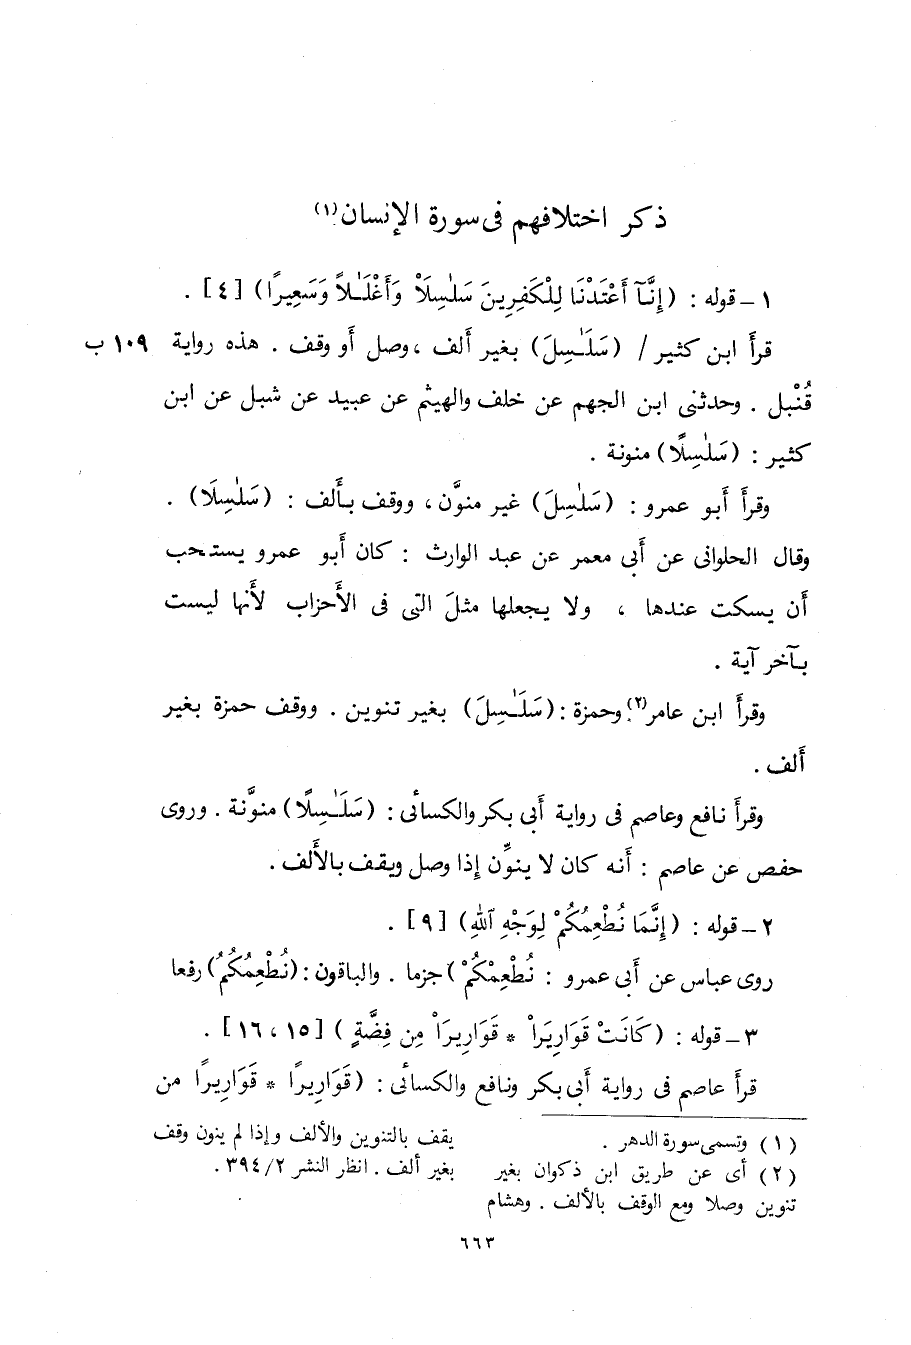 ذكر اختلافهم فى سورة الإنسان(١)
١ – قوله : (إِنَّآ أَعْتَدْنَا لِلْكَٰفِرِينَ سَلَٰسِلَاْ وَأَغْلَٰلاً وَسَعِيرًا) [٤] .
قرأَ ابن كثير / (سَلَٰسِلَ) بغير ألف ، وصل أَو وقف . هذه رواية ١٠٩ ب
قُنْبل . وحدثنى ابن الجهم عن خلف والهيثم عن عبيد عن شبل عن ابن
كثير : (سَلَٰسِلًا) منونة .
وقرأَ أَبو عمرو : (سَلَٰسِلَ) غير منوَّن ، ووقف بأَلف : (سَلَٰسِلَا) .
وقال الحلوانى عن أَبى معمر عن عبد الوارث : كان أَبو عمرو يستحب
أَن يسكت عندها ، ولا يجعلها مثلَ التى فى الأَحزاب لأَنها ليست
بآخر آية .
وقرأَ ابن عامر(٢) وحمزة : (سَلَٰسِلَ) بغير تنوين . ووقف حمزة بغير
أَلف .
وقرأَ نافع وعاصم فى رواية أَبى بكر والكسائى : (سَلَٰسِلًا) منوَّنة . وروى
حفص عن عاصم : أَنه كان لا ينوِّن إِذا وصل ويقف بالأَلف .
٢ – قوله : (إِنَّمَا نُطْعِمُكُمْ لِوَجْهِ ٱللهِ) [٩] .
روى عباس عن أَبى عمرو : نُطْعِمْكُمْ) جزما . والباقون : (نُطْعِمُكُمُ) رفعا
٣ – قوله : (كَانَتْ قَوَارِيرَاْ * قَوَارِيرَاْ مِن فِضَّةٍ ) [١٥ ، ١٦] .
قرأَ عاصم فى رواية أَبى بكر ونافع والكسائى : (قَوَارِيرًا * قَوَارِيرًا من
(١) وتسمى سورة الدهر .
(٢) أى عن طريق ابن ذكوان بغير
تنوين وصلا ومع الوقف بالألف . وهشام
يقف بالتنوين والألف وإذا لم ينون وقف
بغير ألف . انظر النشر ٣٩٤/٢ .
٦٦٣